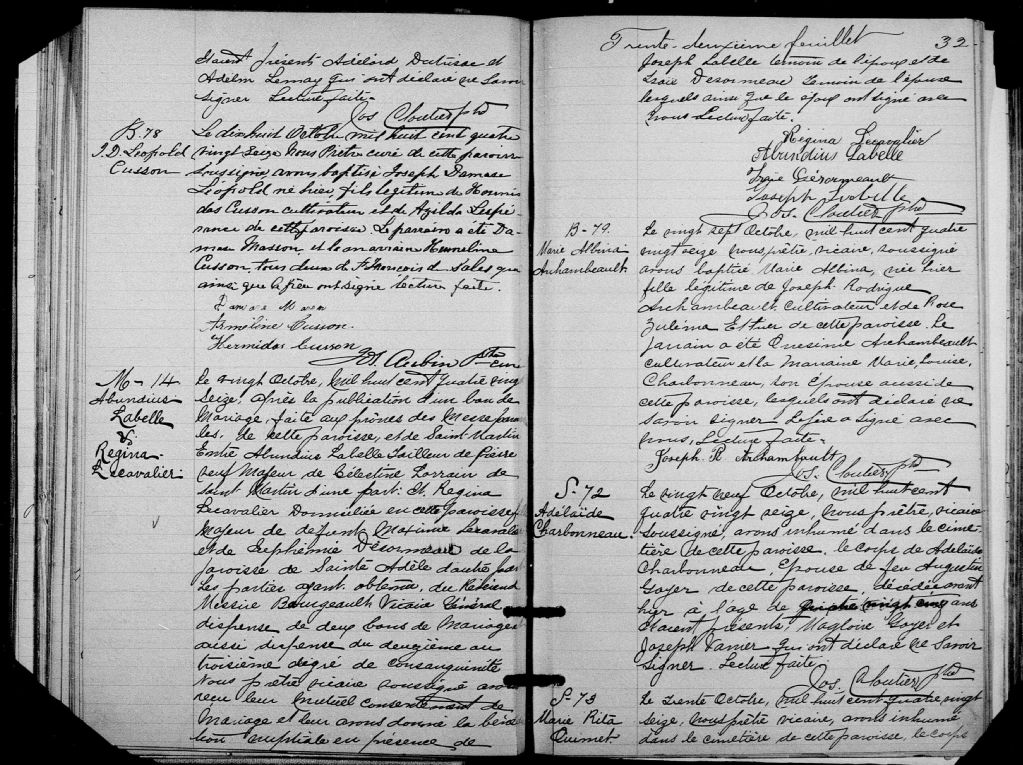 Etaient présents Adélard Dubrise et
Adelm Lemay qui ont déclaré ne savoir
signer Lecture faite.
Jos Cloutier ptr
B. 78
J. D. Léopold
Cusson
Le dixhuit Octobre mil huit cent quatre
vingt seize Nous Prêtre curé de cette paroisse
soussigné avons baptisé Joseph Damase
Léopold né hier fils légitime de Hormis
das Cusson cultivateur et de Azilda Lespé-
rance de cette paroisse Le parrain a été Da-
mase Masson et la marraine Herméline
Cusson, tous deux de St François de Sales qui
ainsi que le père ont signé lecture faite.
Damase Masson
Arméline Cusson.
Hermidas Cusson
Aubin Ptre
curé
M - 14
Abundius
Labelle
&
Regina
Lecavalier
Le vingt Octobre, mil huit cent quatre vingt
seize, après la publication d'un ban de
Mariage, faite aux prônes des Messes parois
les, de cette paroisse, et de Saint Martin
Entre Abundius Labelle Tailleur de pierre
veuf Majeur de Célestine Lorrain de
Saint Martin d'une part: Et Regina
Lecavalier Domiciliée en cette paroisse
Majeure de défunt Maxime Lecavalier
et de Euphémie Désormeau de la
paroisse de Sainte Adèle d'autre part
Les parties ayant obtenu du Révérend
Messire Bourgeault Vicaire Général
dispense de deux bans de Mariage
aussi dispense du deuxième au
troisième degré de consanguinité
Nous prêtre vicaire soussigné avons
reçu leur Mutuel consentement de
Mariage et leur avons donné la béné
tion nuptiale en présence de
Trente-deuxième feuillet 32-
Joseph Labelle témoin de l'époux et de
Isaïe Desormeau témoin de l'épouse
lesquels ainsi que le époux ont signé avec
nous Lecture faite.
Régina Lecavalier
Abundius Labelle
Isaie Désormeault
Joseph Labelle
Jos. Cloutier ptr
B - 79.
Marie Albina
Archambeault
Le vingt sept Octobre, mil huit cent quatre
vingt seize nous, prêtre, vicaire, soussigné
avons baptisé Marie Albina, née hier
fille légitime de Joseph Rodrigue
Archambeault Cultivateur et de Rose
Zuléma Ethier de cette paroisse. Le
parrain a été Onésime Archambeault
cultivateur et la Marraine Marie Louise
Charbonneau, son Epouse aussi de
cette paroisse, lesquels ont déclaré ne
savoir signer. Le père a signé avec
nous, Lecture faite.
Joseph R Archambault
Jos. Cloutier ptr
S - 72
Adélaïde
Charbonneau.
Le vingt neuf Octobre, mil huit cent
quatre vingt seize, nous prêtre, vicaire
soussigné, avons inhumé dans le cime
tière de cette paroisse, le corps de Adelaïde
Charbonneau Epouse de feu Augustin
Goyer de cette paroisse, décédée avant
hier à l'age de quatre vingt cinq ans
Etaient présents, Magloire Goyer et
Joseph Vanier qui ont déclaré ne savoir
signer. Lecture faite
Jos. Cloutier ptr
S - 73
Marie Rita
Ouimet.
Le trente Octobre, mil huit cent quatre vingt
seize, nous prêtre vicaire, avons inhumé
dans le cimetière de cette paroisse, le corps